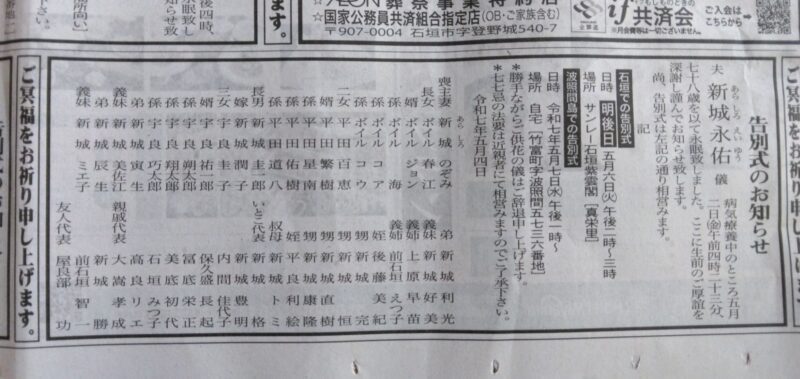 葬祭事業特約店
☆国家公務員共済組合指定店(OB・ご家族含む)
〒907-0004 石垣市字登野城540-7
もしものときの
if共済会
ご入会は
こちらから
※月会費等は一切ございません。
告別式のお知らせ
夫 新城永佑 儀
あら しろ えい ゆう
病気療養中のところ五月
二日(金)午前四時二十三分、
七十八歳を以て永眠致しました。ここに生前のご厚誼を
深謝し謹んでお知らせ致します。
尚、告別式は左記の通り相営みます。
記
石垣での告別式
日時 明後日 五月六日(火)午後二時〜三時
場所 サンレー石垣紫雲閣[真栄里]
波照間島での告別式
日時 令和七年五月七日(水)午後一時〜
場所 自宅(竹富町字波照間五七三六番地)
*勝手ながらご供花の儀はご辞退申し上げます。
*七七忌の法要は近親者にて相営みますのでご了承下さい。
令和七年五月四日
あらしろ
喪主 妻 新城のぞみ
長女 ボイル春江
婿 ボイルジョン
孫 ボイル海
孫 ボイルコア
孫 ボイルコウ
二女 平田百恵
婿 平田繁樹
孫 平田星南
孫 平田佑樹
孫 平田道八
長男 新城圭二郎
嫁 新城潤子
三女 宇良圭子
婿 宇良祐一郎
孫 宇良朔太郎
孫 宇良翔太郎
孫 宇良巧太郎
弟 新城寅生
義妹 新城美佐江
弟 新城辰生
義妹 新城ミエ子
弟 新城利光
義妹 新城好美
義姉 上原早苗
義姉 前石えつ子
姪 後藤美紀
甥 新城完
甥 新城恒
甥 新城直樹
甥 新城康隆
姪 平良利絵
叔母 新城トミ
いとこ代表 新城格
新城豊明
内間佳代子
保久盛長起
冨底栄正
美底初代
石垣みつ子
高良リエ
親戚代表 大嵩孝成
新城勝
友人代表 前石智一
屋良部功
ご冥福をお祈り申し上げます。